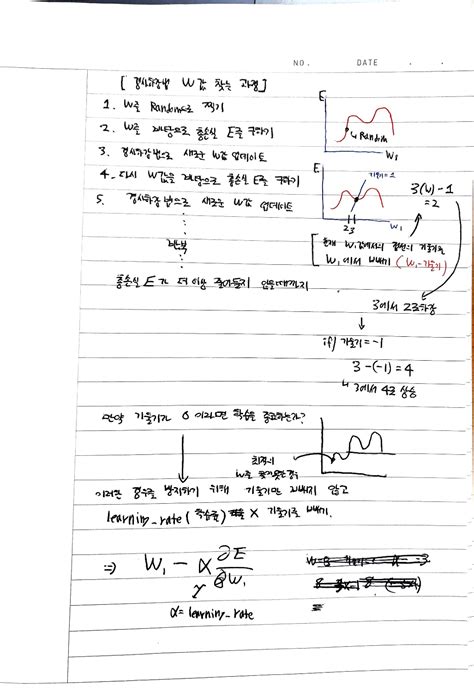 NO. DATE . .
[ 경사하강법 W값 찾는 과정 ]
1. W를 Random으로 찍기
2. W를 바탕으로 총손실 E를 구하기
3. 경사하강법으로 새로운 W값 업데이트
4. 다시 W값을 바탕으로 총손실 E를 구하기
5. 경사하강법으로 새로운 W값 업데이트
반복
총손실 E가 더이상 줄어들지 않을때까지
E
↳ Random
W₁
E
기울기=1
2 3
W₁
3(W) - 1
= 2
[ 현재 W₁값에서의 접선의 기울기를
W₁에서 빼기 (W₁-기울기)
3에서 2로하강
↓
if) 기울기 = -1
3 - (-1) = 4
↳ 3에서 4로 상승
만약 기울기가 0 이라면 학습을 종료하는가?
최적의
W를 못찾았는 경우
이러한 경우를 방지하기 위해 기울기만 빼지 않고
learning_rate (학습률) × 기울기를 빼기.
⇒ W₁ - α ∂E/∂W₁
α = learning_rate
=